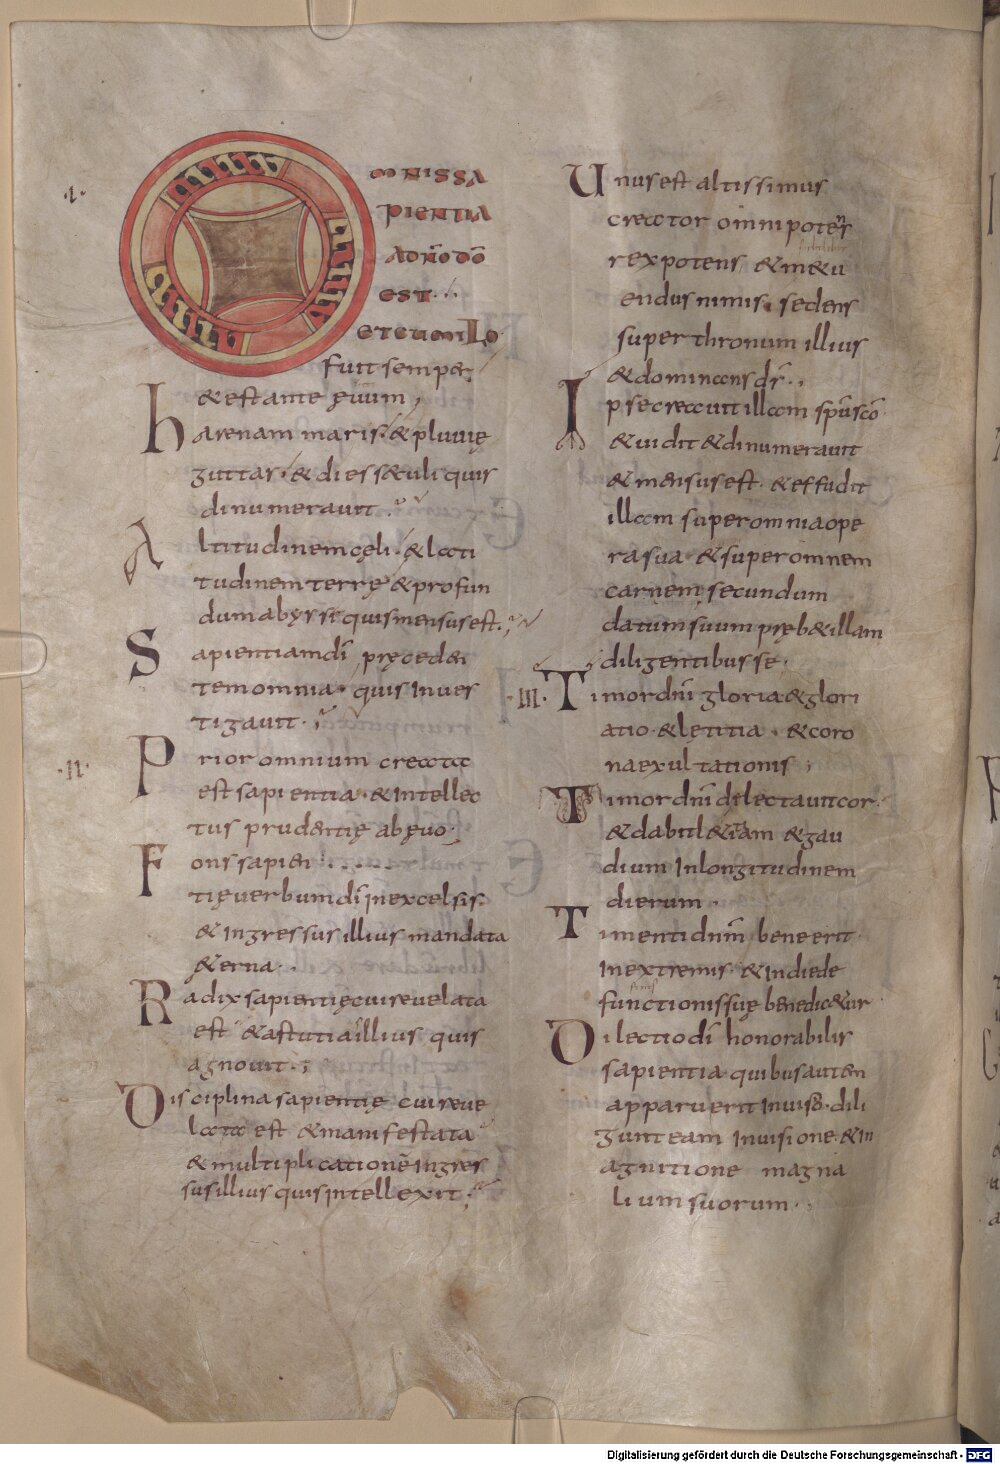 ·I·
OMNISSA
PIENTIA
ADN̄ODŌ
EST ...
ETCUMILLO
fuit semper
& est ante ęuum,
harenam maris· & pluuię
guttas· & dies sęculi quis
dinumerauit
Altitudinem cęli· & lati
tudinem terrę & profun
dum abyssi quis mensus est·;
Sapientiam dī pręceden
tem omnia· quis inues
tigauit·;
·II·
Prior omnium creata
est sapientia· & intellec
tus prudentię ab ęuo·
Fons sapien
tię uerbum dī in excelsis·
& ingressus illius mandata
&erna··
Radix sapientię cui reuelata
est & astutia illius quis
agnouit·;
Disciplina sapientię cui reue
lata est & manifestata
& multiplicationē ingres
sus illius quis intellexit·;
Unus est altissimus
creator omnipotens
rex potens & m&u
endus nimis· sedens
super thronum illius
& dominans ds̄·,
Ipse creauit illam spū scō·
& uidit & dinumerauit
& mensus est· & effudit
illam super omnia ope
ra sua· & super omnem
carnem secundum
datum suum pręb& illam
diligentibus se·
·III·
Timor dn̄i gloria & glori
atio· & lętitia · & coro
na exultationis ;
Timor dn̄i delectauit cor·
& dabit l&itiam & gau
dium in longitudinem
dierum ·
Timenti dn̄m bene erit·
in extremis· & in die de
functionis suę benedic&ur·
Dilectio dī honorabilis
sapientia· quibus autem
apparuerit in uisu· dili
gunt eam in uisione· & in
agnitione magna
lium suorum· ;
Digitalisierung gefördert durch die Deutsche Forschungsgemeinschaft - DFG